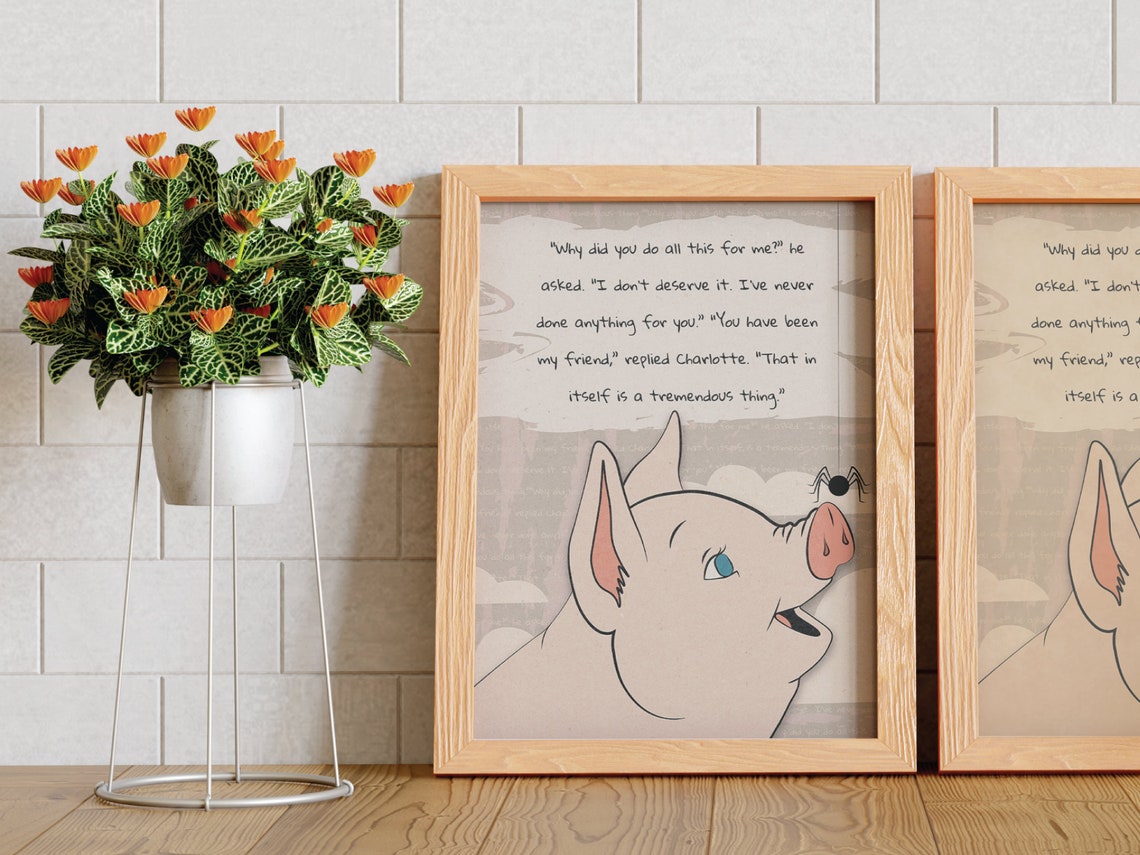 "Why did you do all this for me?" he
asked. "I don't deserve it. I've never
done anything for you." "You have been
my friend," replied Charlotte. "That in
itself is a tremendous thing."
"Why did you
asked. "I
done anything
my friend,"
itself is a